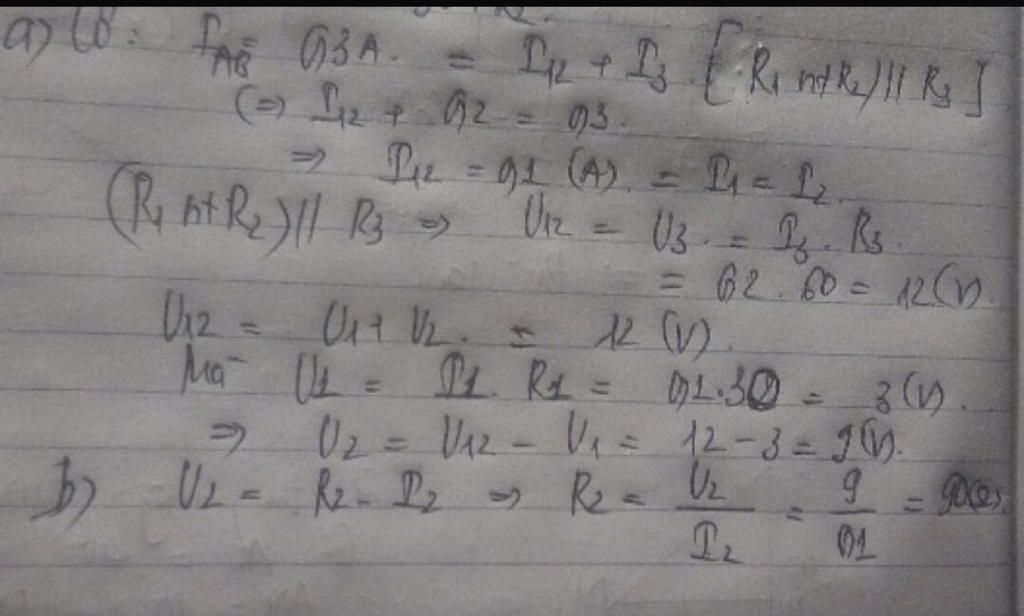 a) Có: I_AB = 0,3A. = I_12 + I_3 [(R_1 nt R_2) // R_3]
(=> I_12 + 0,2 = 0,3.
=> I_12 = 0,1 (A) = I_1 = I_2.
(R_1 nt R_2) // R_3 => U_12 = U_3. = I_3 . R_3.
= 0,2 . 60 = 12 (V).
U_12 = U_1 + U_2. = 12 (V).
Mà U_1 = I_1. R_1 = 0,1.30 = 3 (V).
=> U_2 = U_12 - U_1 = 12 - 3 = 9 (V).
b) U_2 = R_2 - I_2 => R_2 = U_2 / I_2 = 9 / 0,1 = 90 (Ω).